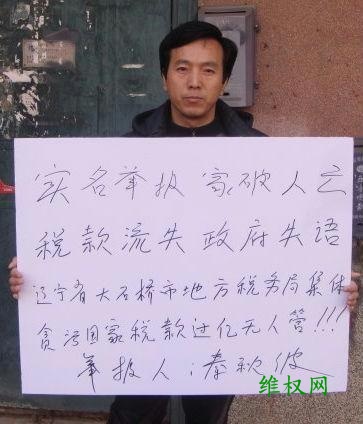 实名举报 家破人亡
税款流失 政府失语
辽宁省大石桥市地方税务局集体
贪污国家税款过亿无人管!!!
举报人:秦秋俊
维权网